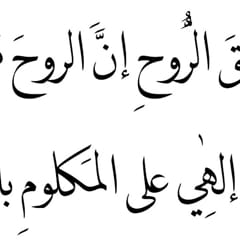 قَ الرُّوحِ إنَّ الروحَ
إلهِي على المَكلومِ با